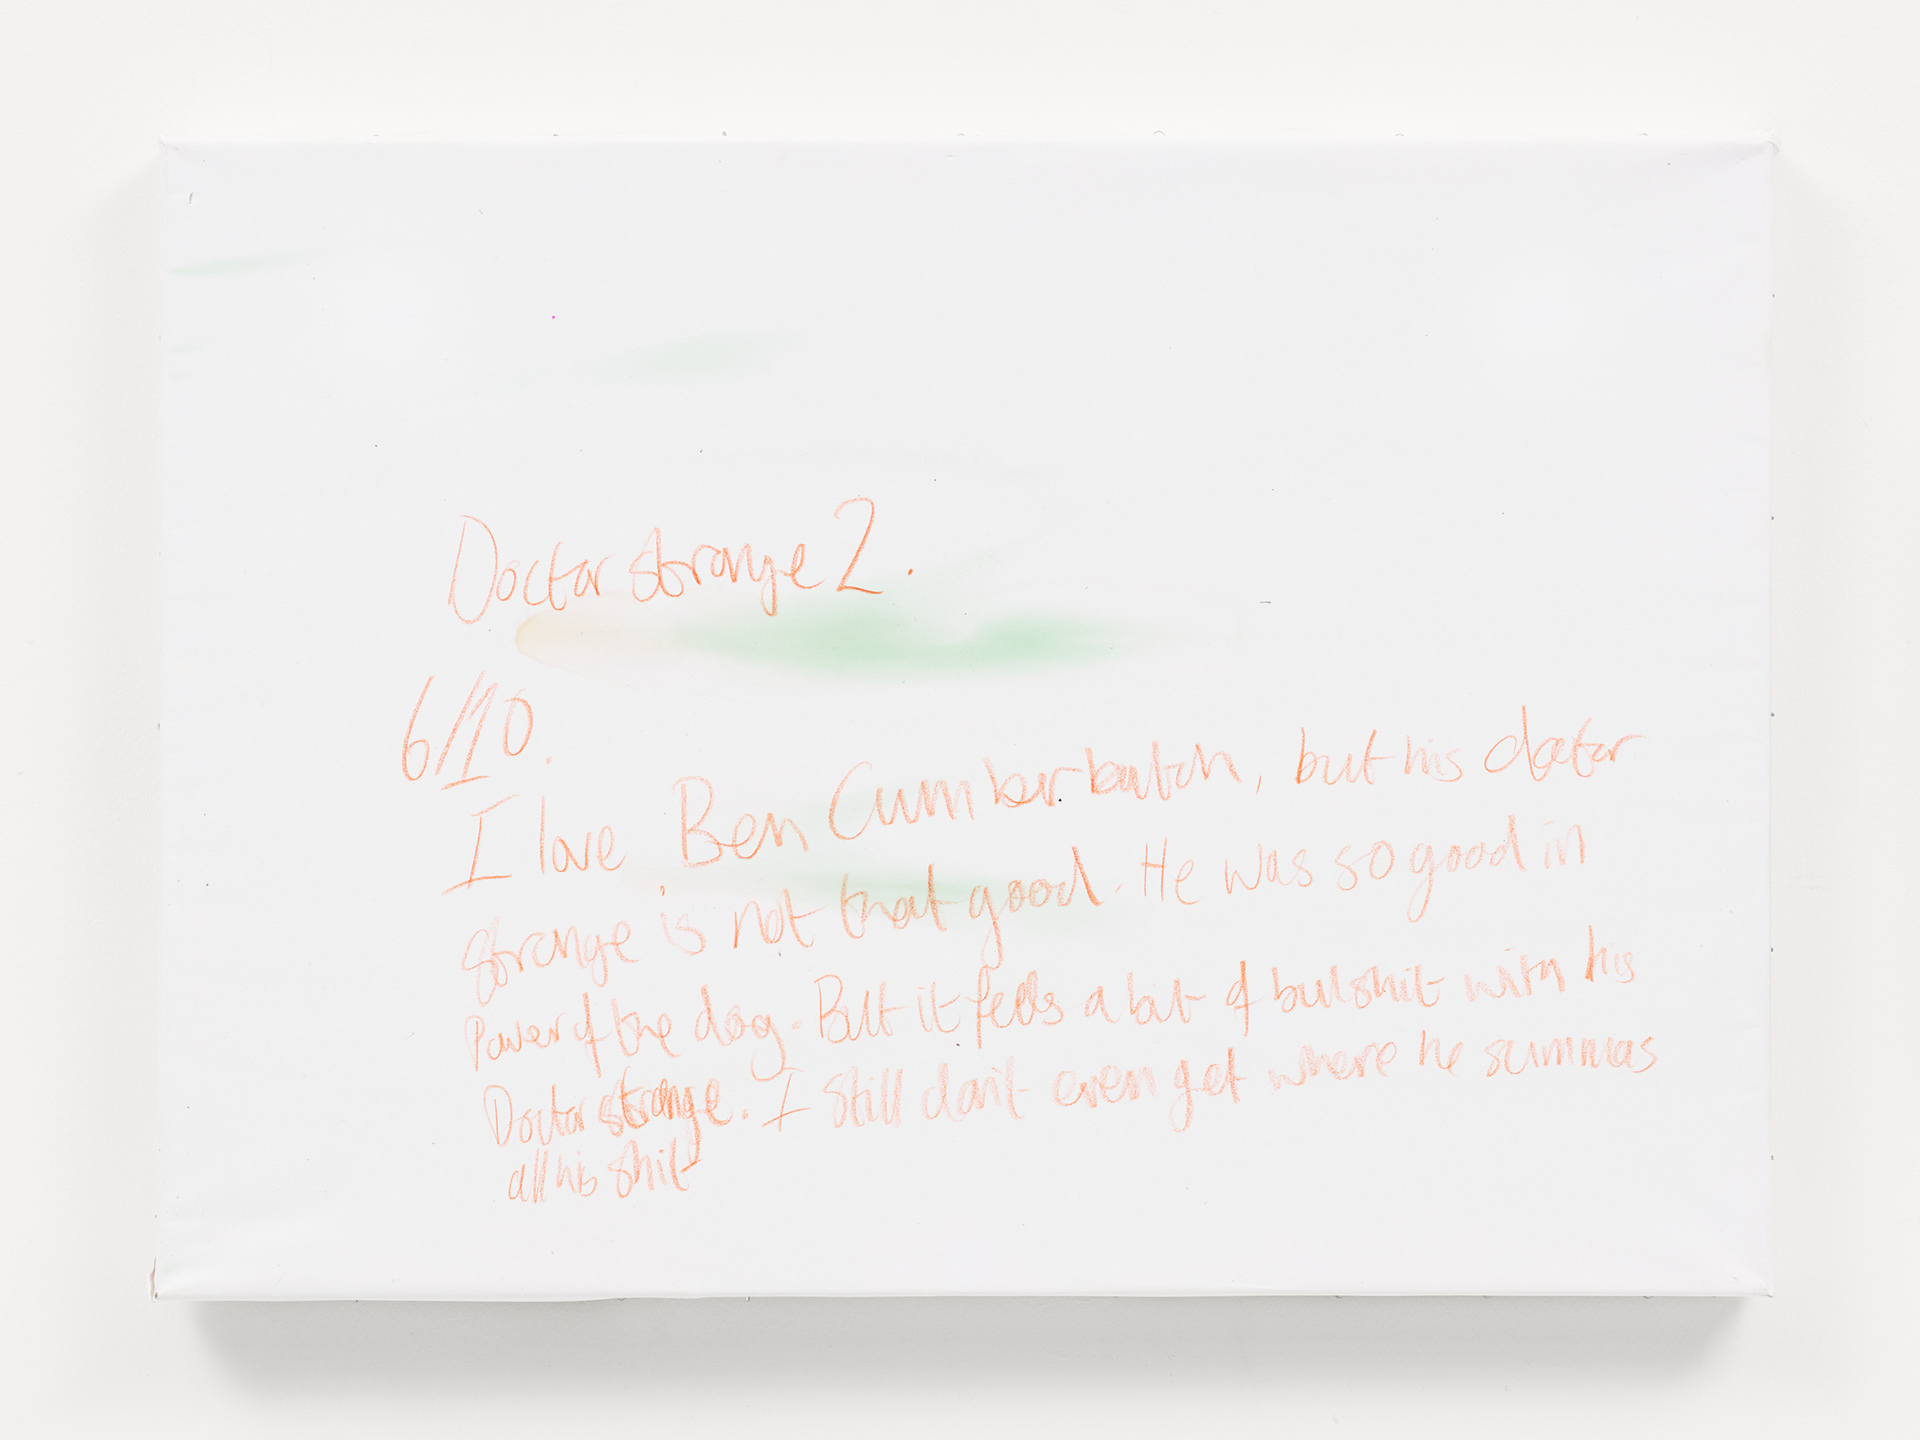 Doctor strange 2.
6/10.
I love Ben Cumberbatch, but his doctor
strange is not that good. He was so good in
Power of the dog. But it feels a bit of bullshit with his
Doctor strange. I still don't even get where he summons
all his shit